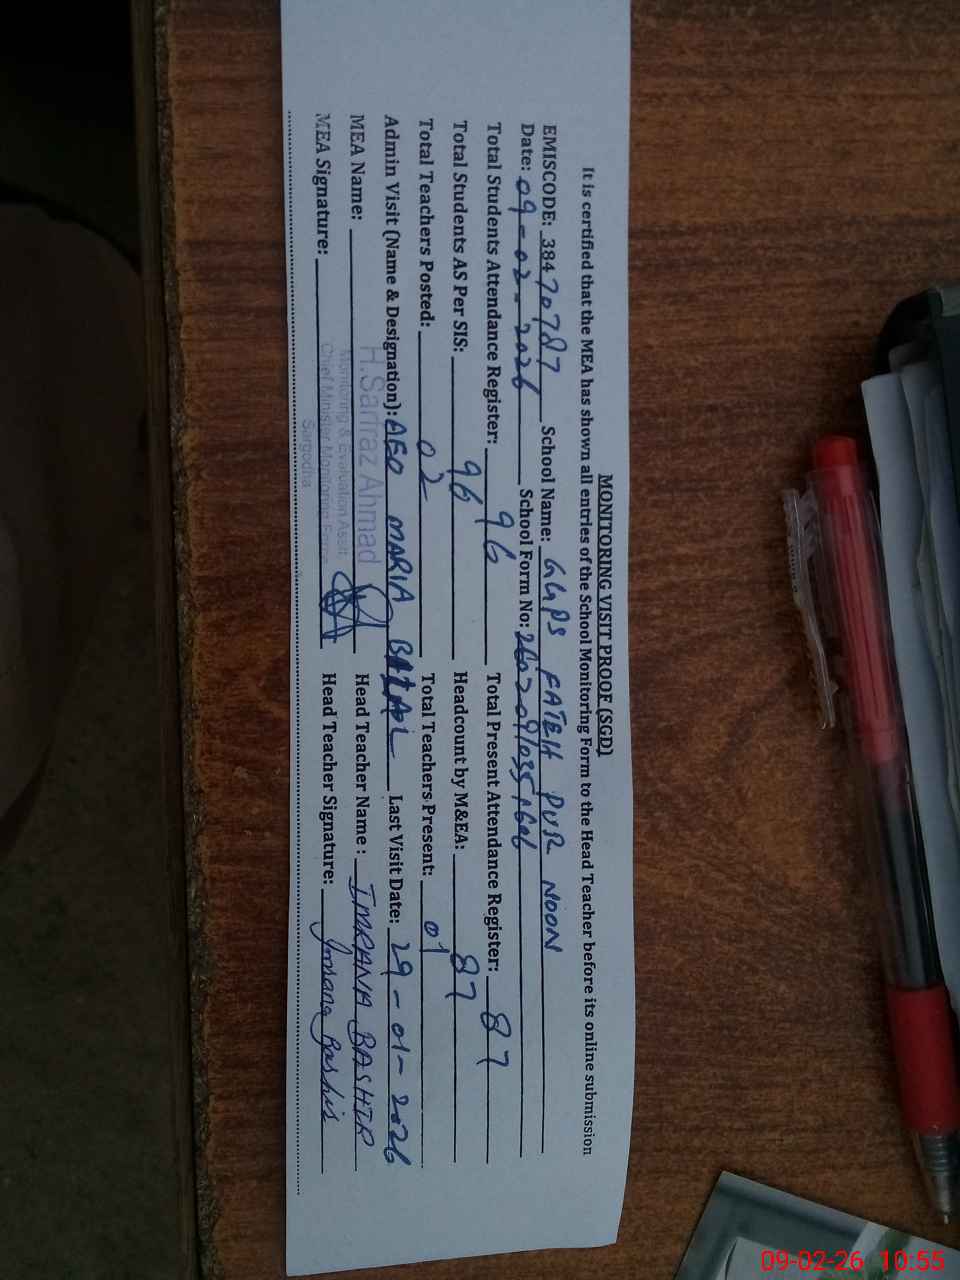 MONITORING VISIT PROOF (SGD)
It is certified that the MEA has shown all entries of the School Monitoring Form to the Head Teacher before its online submission
EMISCODE: 38470787 School Name: GGPS FATEH PUR NOON
Date: 09-02-2026 School Form No:
Total Students Attendance Register: 96 Total Present Attendance Register: 87
Total Students AS Per SIS: 96 Headcount by M&EA: 87
Total Teachers Posted: 02 Total Teachers Present: 01
Admin Visit (Name & Designation): AEO MARIA Last Visit Date: 29-01-2026
MEA Name: H.Sarfraz Ahmad Head Teacher Name: IMRANA BASHIR
Monitoring & Evaluation Asstt
MEA Signature: Chief Minister Monitoring Force Head Teacher Signature: Imrana Bashir
Sargodha
09-02-26 10:55